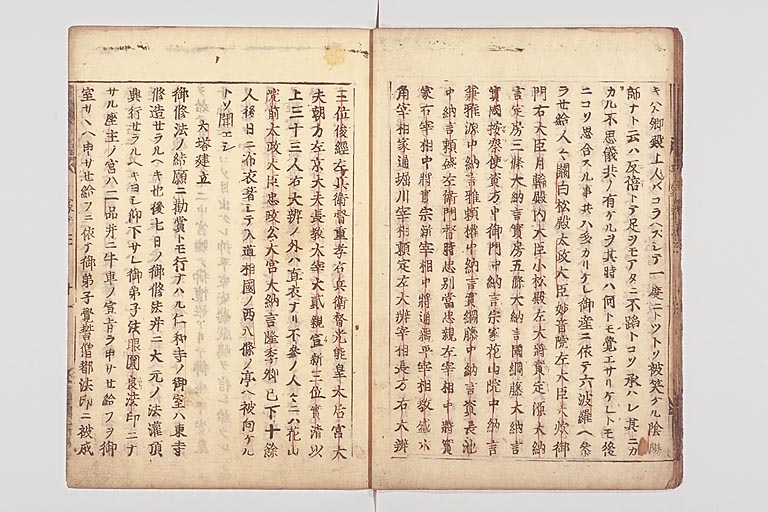 キ公卿殿上人ハコラヘスシテ一度ニトツトリ被笑ケル陰陽
師ナト云ハ反倍トテ足ヲモアタニ不蹈トコソ承ハレ其ニカ
カル不思儀共ノ有ケルヲ其時ハ何トモ覺エサリケレトモ後
ニコソ思合スル事共ハ多カリケレ御産ニ依テ六波羅ヘ参
ラセ給人々關白松殿太政大臣妙音院左大臣大炊御
門右大臣月輪殿内大臣小松殿左大将實定源大納
言定房三條大納言實房五條大納言國綱藤大納言
實國按察使資方中御門中納言宗家花山院中納言
兼雅源中納言雅頼權中納言實綱藤中納言資長池
中納言頼盛左衛門督時忠別當忠親左宰相中将實
家右宰相中将實宗新宰相中将通親平宰相教盛六
角宰相家通堀川宰相頼定左大辨宰相長方右大辨
三位俊經左兵衛督重孝右兵衛督光能皇太后宮大
夫朝方左京大夫長教太宰大貳親宣新三位實清以
上三十三人右大辨ノ外ハ直衣ナリ不参ノ人々ニハ花山
院前太政大臣忠政公大宮大納言隆季卿已下十餘
人後日ニ布衣著シテ入道相國ノ西八條ノ亭ヘ被向ケル
トソ聞エシ
大塔建立
御修法ノ結願ニ勸賞トモ行ナハル仁和寺ノ御室ハ東寺
修造セラルヘキ也後七日ノ御修法并ニ大元ノ法灌頂
興行セラルヘキヨシ仰下サレ御弟子法眼圓良法印ニナ
サル座主ノ宮ハ二品并ニ牛車ノ宣旨ヲ申サせ給フヲ御
室サヽヘ申サせ給フニ依テ御弟子覺誓僧都法印ニ被成